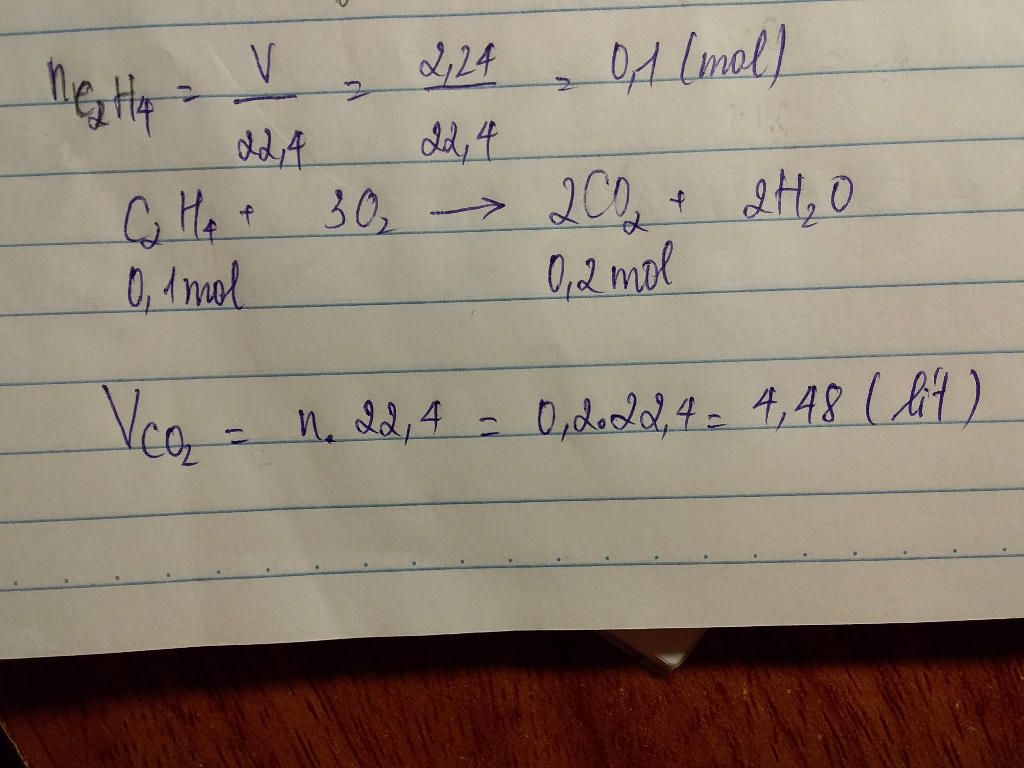 nC₂H₄ = V/22,4 = 2,24/22,4 = 0,1 (mol)
C₂H₄ + 3O₂ → 2CO₂ + 2H₂O
0,1mol 0,2mol
VCO₂ = n. 22,4 = 0,2.22,4 = 4,48 (lít)